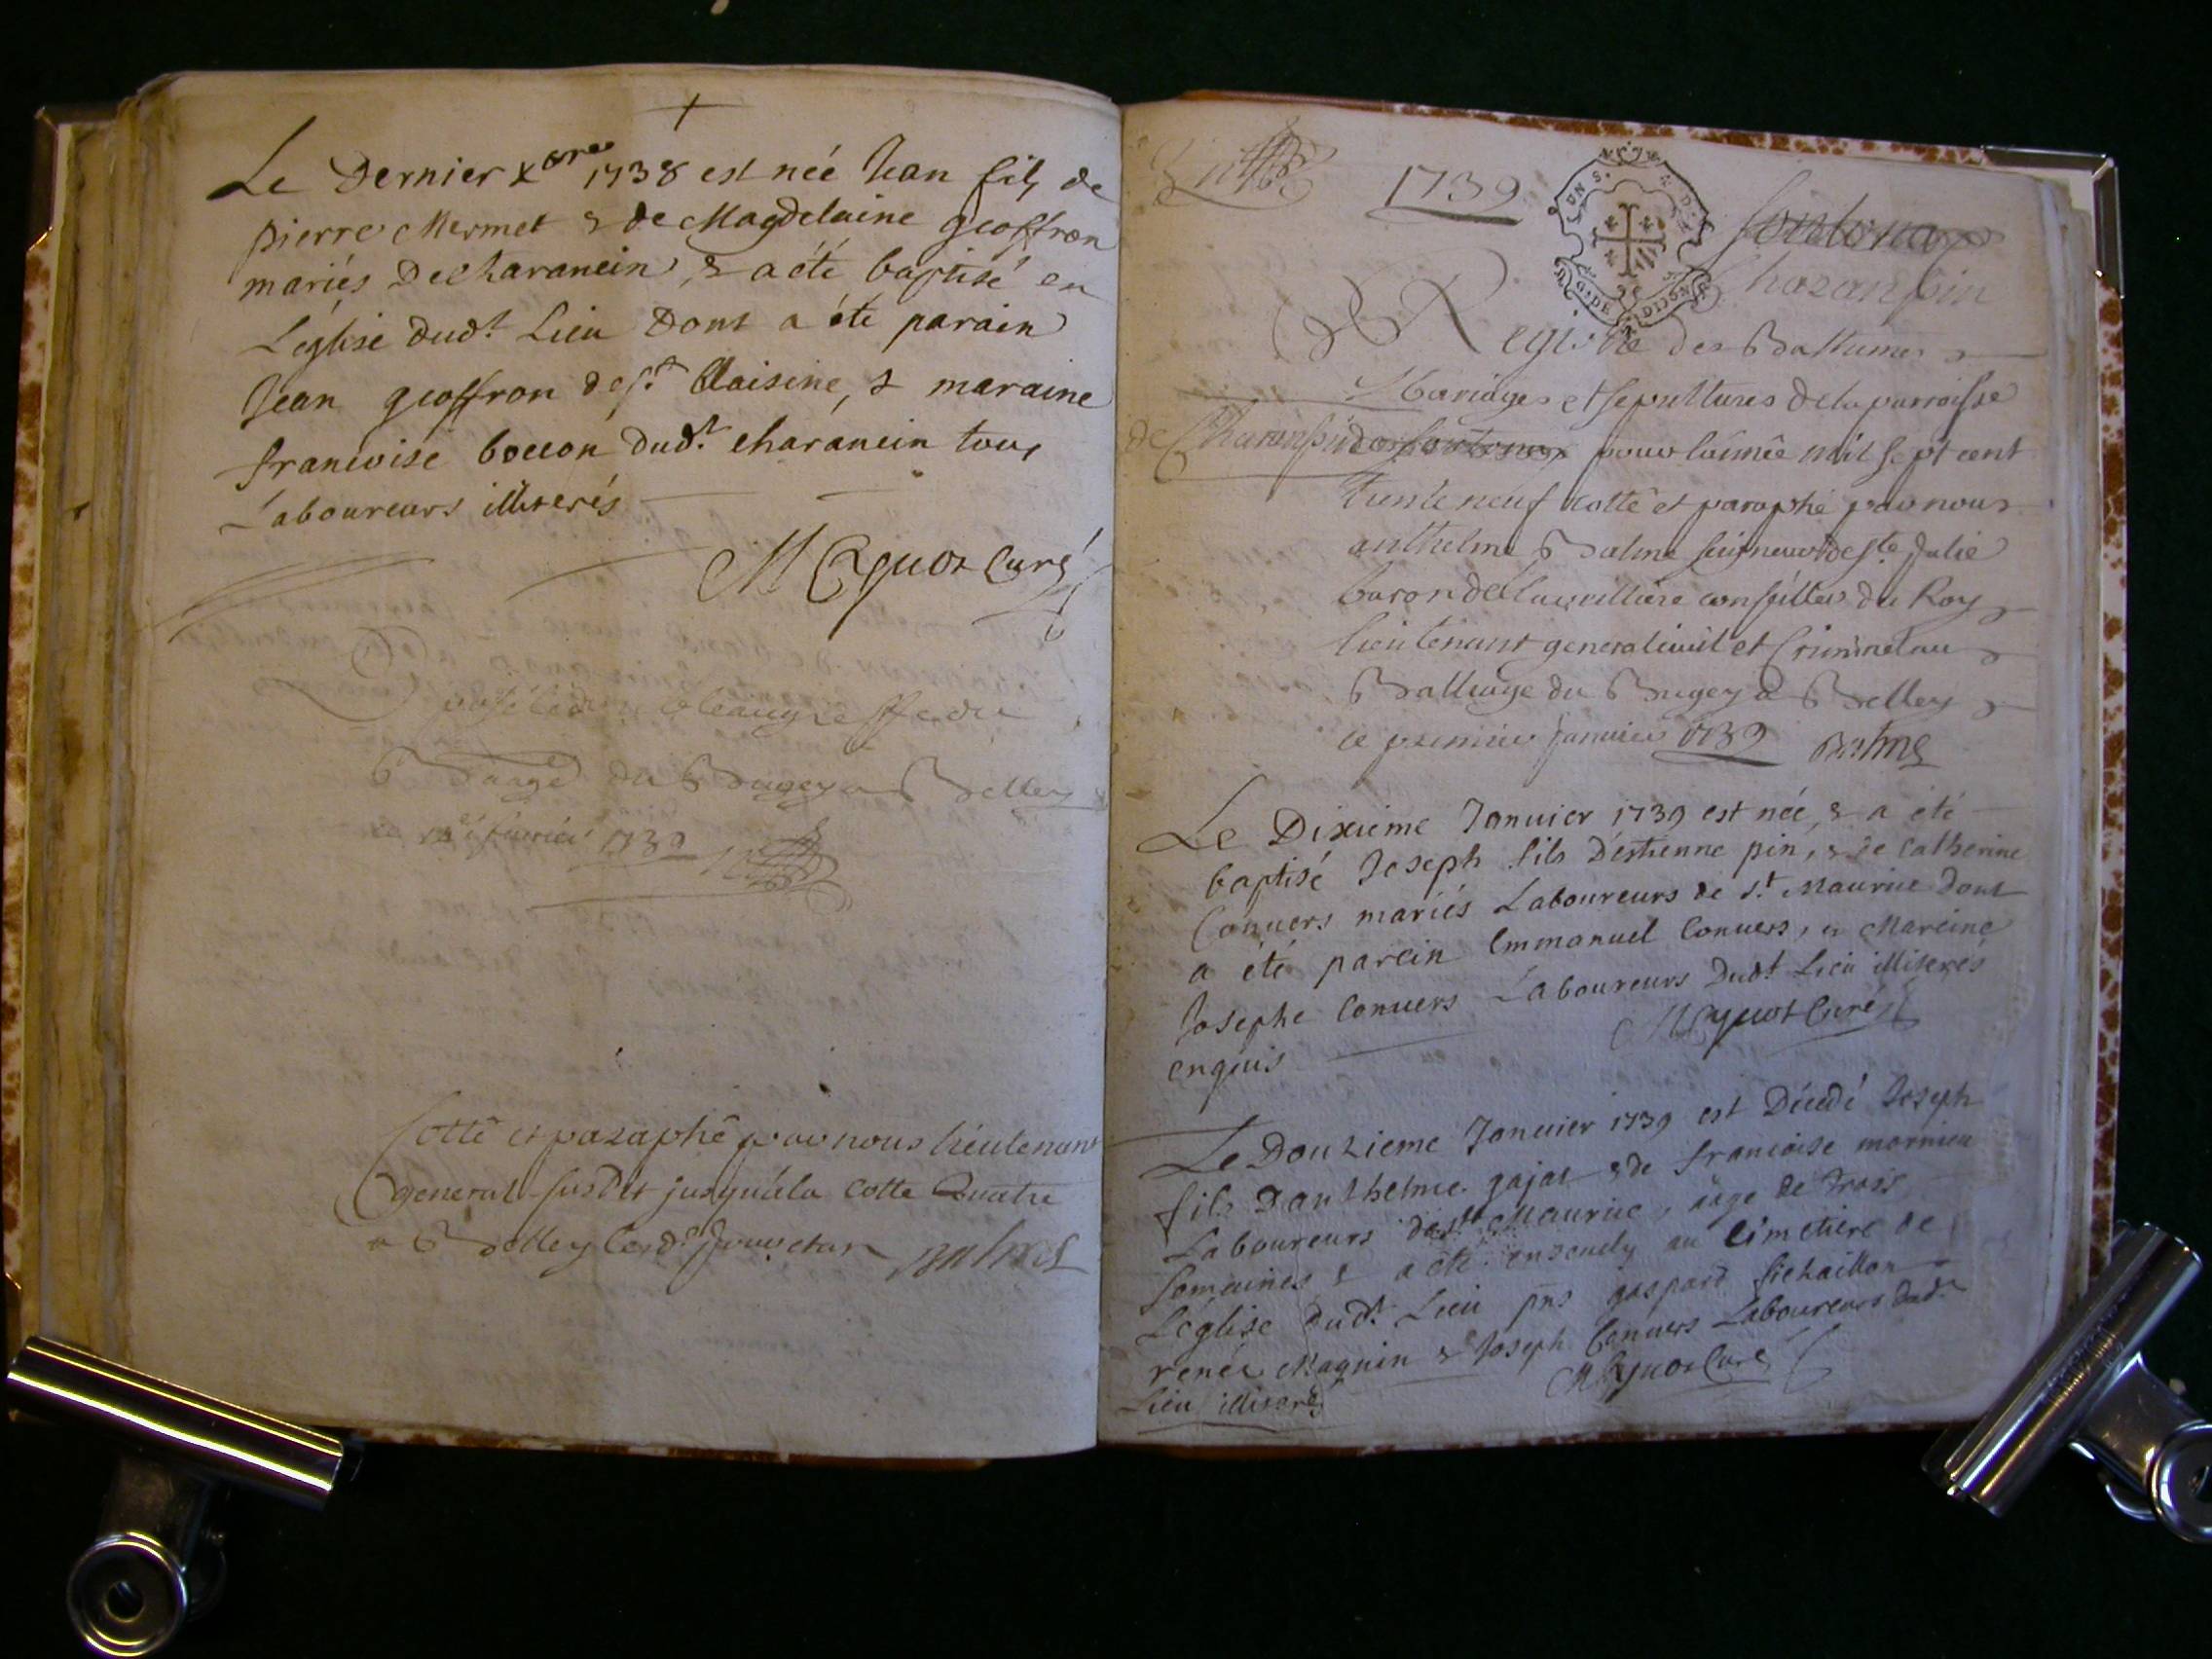 Le Dernier Xbre 1738 est née Jean fils de
pierre Mermet & de Magdelaine geoffron
mariés Decharancin, & a été baptisé en
L'église dud.t Lieu Dont a été parain
Jean geoffron de s.te Blaisine, & maraine
francoise boccon dud.t charancin tous
Laboureurs illiterés
M Cyuoz Curé
du
Bugey a Belley
fevrier 1739
Cotté et paraphé par nous lieutenant
General susdit jusqu'a la cotte Quatre
a Belley Balme
1739
fontenay
Charanssin
Registre des Battumes
Mariages et sepultures de la parroisse
de Charanssin pour l'année mil sept cent
trente neuf cotté et paraphé par nous
anthelme Balme seigneur de s.te Julie
baron de conseiller du Roy
lieutenant general civil et Criminel au
Balliage du Bugey a Belley
ce premier Janvier 1739 Balme
Le Dixieme Januier 1739 est née, & a été
baptisé Joseph fils D'estienne pin, & de Catherine
Conuers mariés Laboureurs de s.t Maurice Dont
a été parein Emmanuel Conuers, & Mareine
Josephe Conuers Laboureurs Dud.t Lieu illiterés
enquis M Cyuoz Curé
Le Douzieme Januier 1739 est Décédé Joseph
fils D'anthelme gajat & de francoise mornieu
Laboureurs de s.t Maurice, age de Trois
Semaines & a été enseuely au Cimetiere de
L'église Dud.t Lieu pns gaspard fichaillon
rené Magnin & Joseph Conuers Laboureurs dud.t
Lieu illiterés M Cyuoz Curé